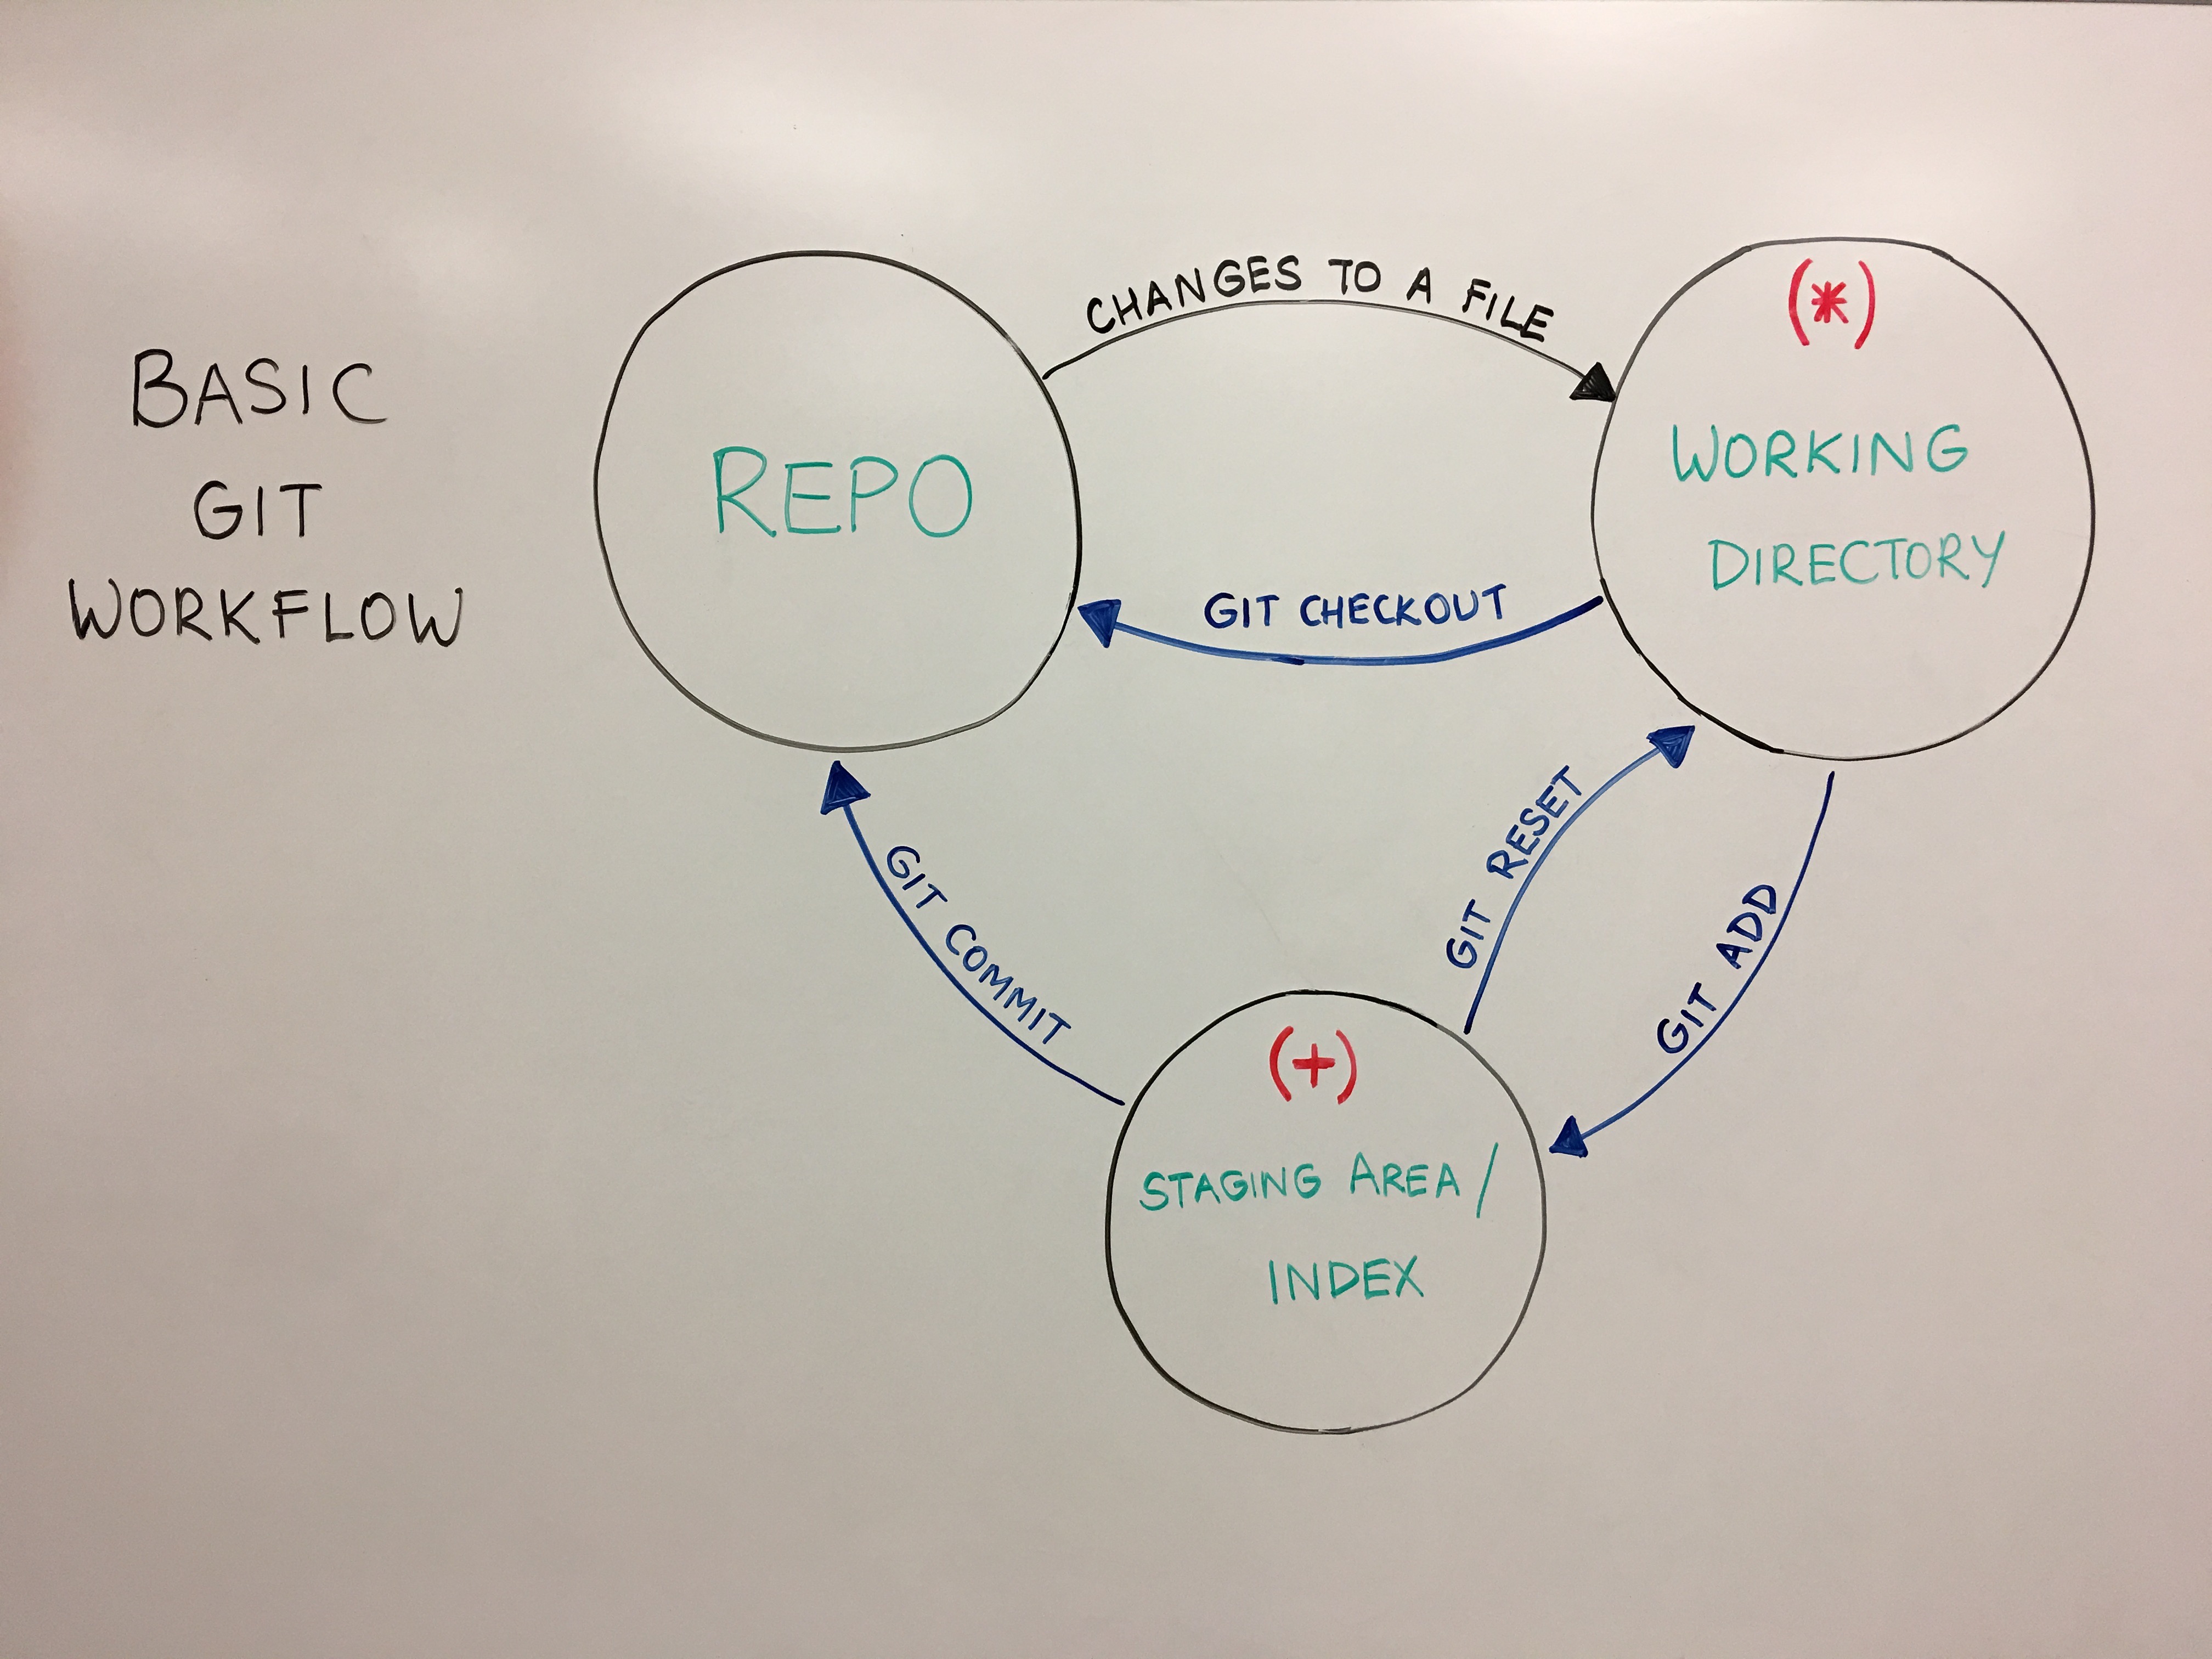 BASIC
GIT
WORKFLOW
REPO
CHANGES TO A FILE
(*)
WORKING
DIRECTORY
GIT CHECKOUT
GIT COMMIT
GIT RESET
GIT ADD
(+)
STAGING AREA/
INDEX